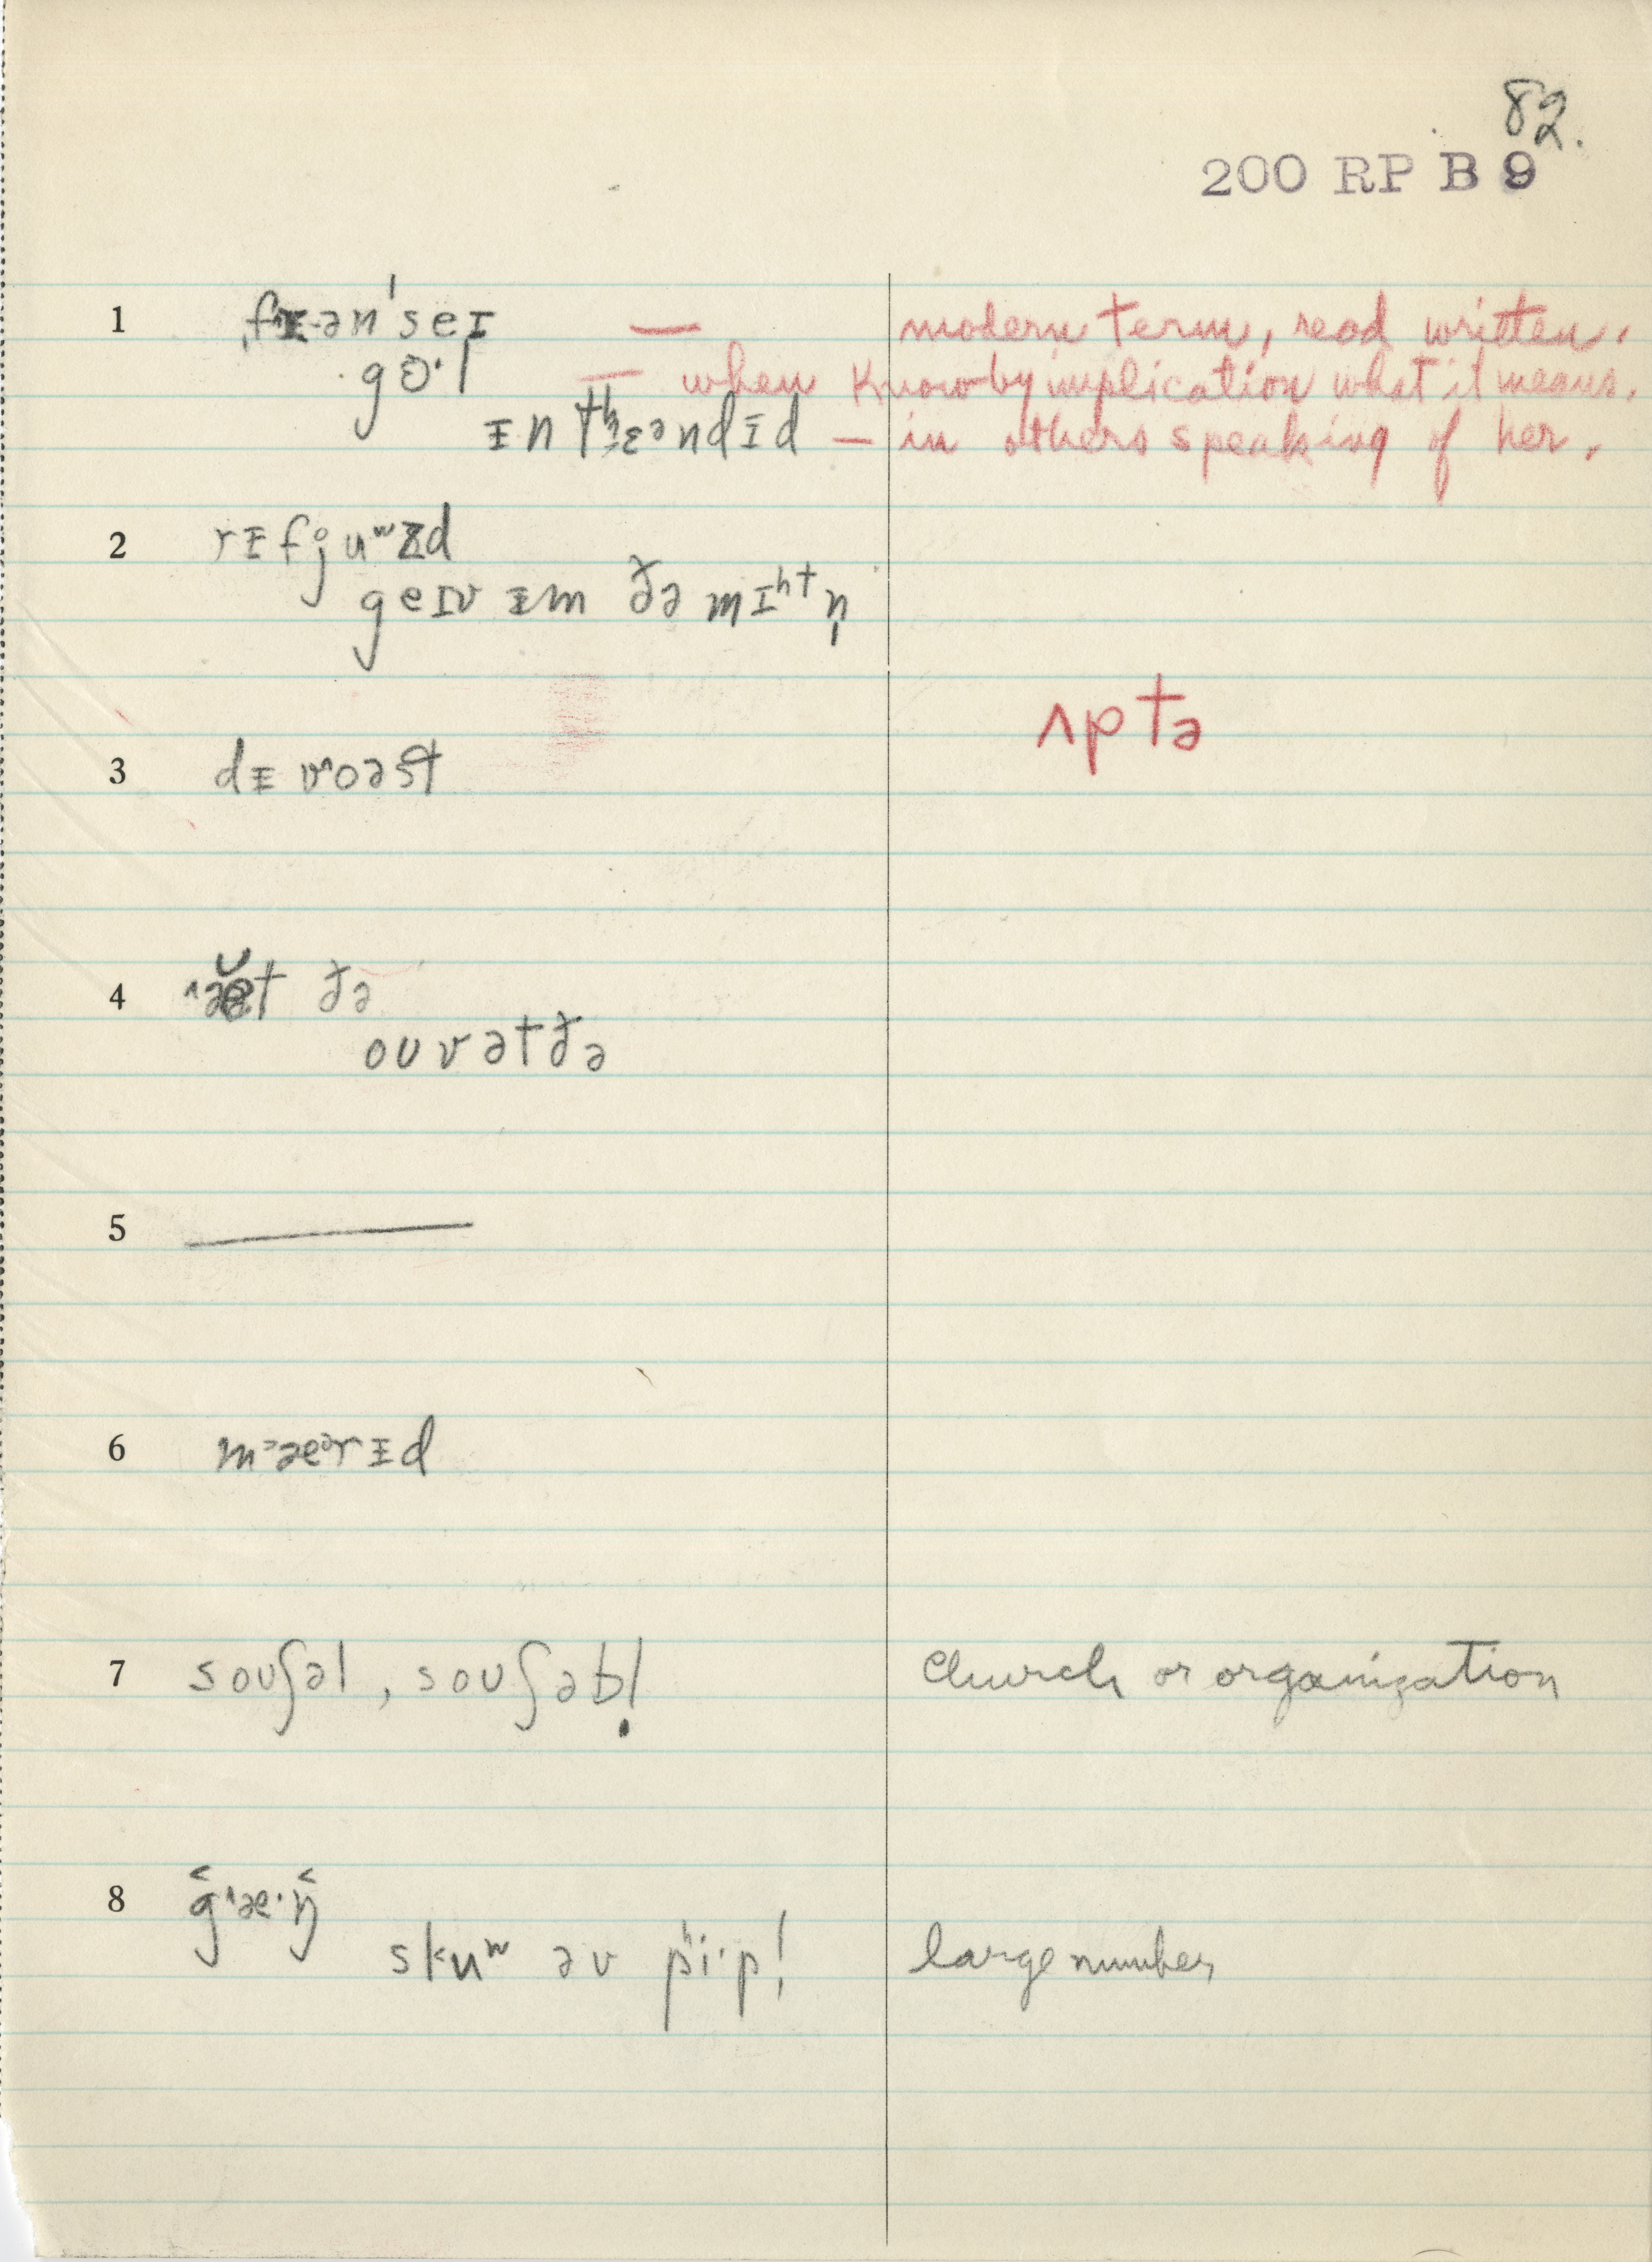 82.
200 RP B 9
1 fɪənˈseɪ — modern term, read written.
gɵ·l — when know by implication what it means.
ɪntʰɛəndɪd — in others speaking of her.
2 rɪfj̥uʷzd
geɪv ɪm ðə mɪʰtn̩
ʌptə
3 dɪvoəst
4 ðə
ouvətðə
5 —
6
7 souʃəl, souʃəbl̩ church or organization
8
skuʷ əv pʰi·pl̩ large number